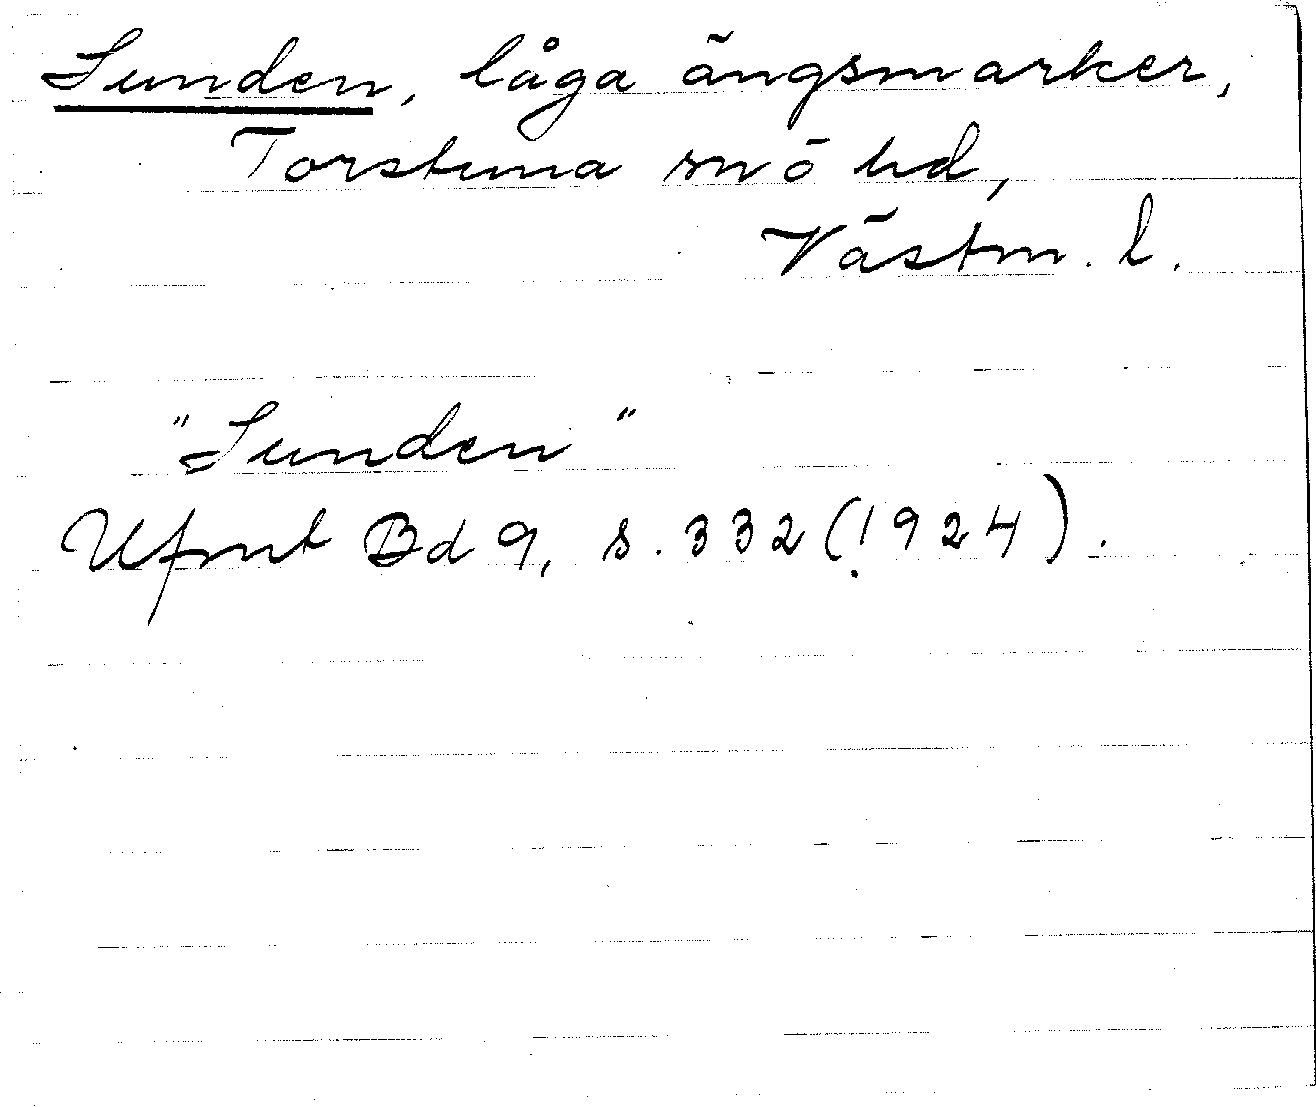 Sunden, låga ängsmarker,
Torstuna sn o hd,
Västm. l.
"Sunden"
Ufmt Bd 9, s. 332 (1924).